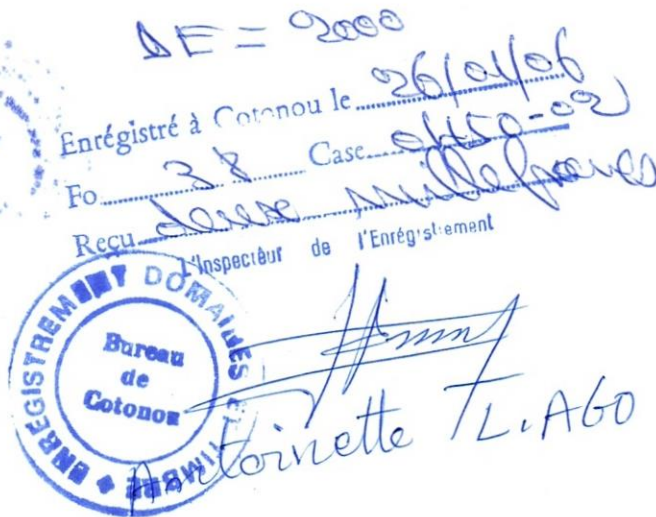 DE = 2000
Enrégistré à Cotonou le 26/01/06
Fo 38 Case 0450-02
Reçu deux mille francs
L'Inspecteur de l'Enrégistrement
ENREGISTREMENT DOMAINES ET TIMBRE
Bureau
de
Cotonou
Antoinette L. AGO